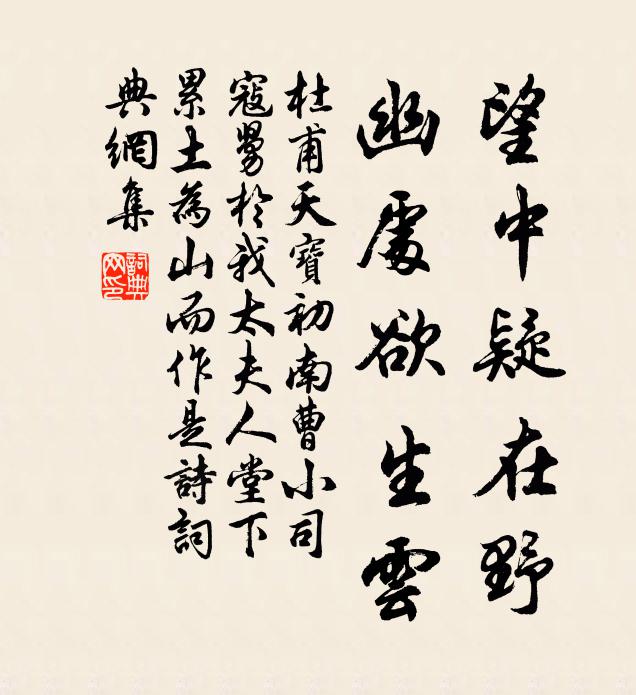 望中疑在野
幽處欲生雲
杜甫天寶初南曹小司
寇舅於我太夫人堂下
累土為山而作是詩詞
典網集
詞典網印